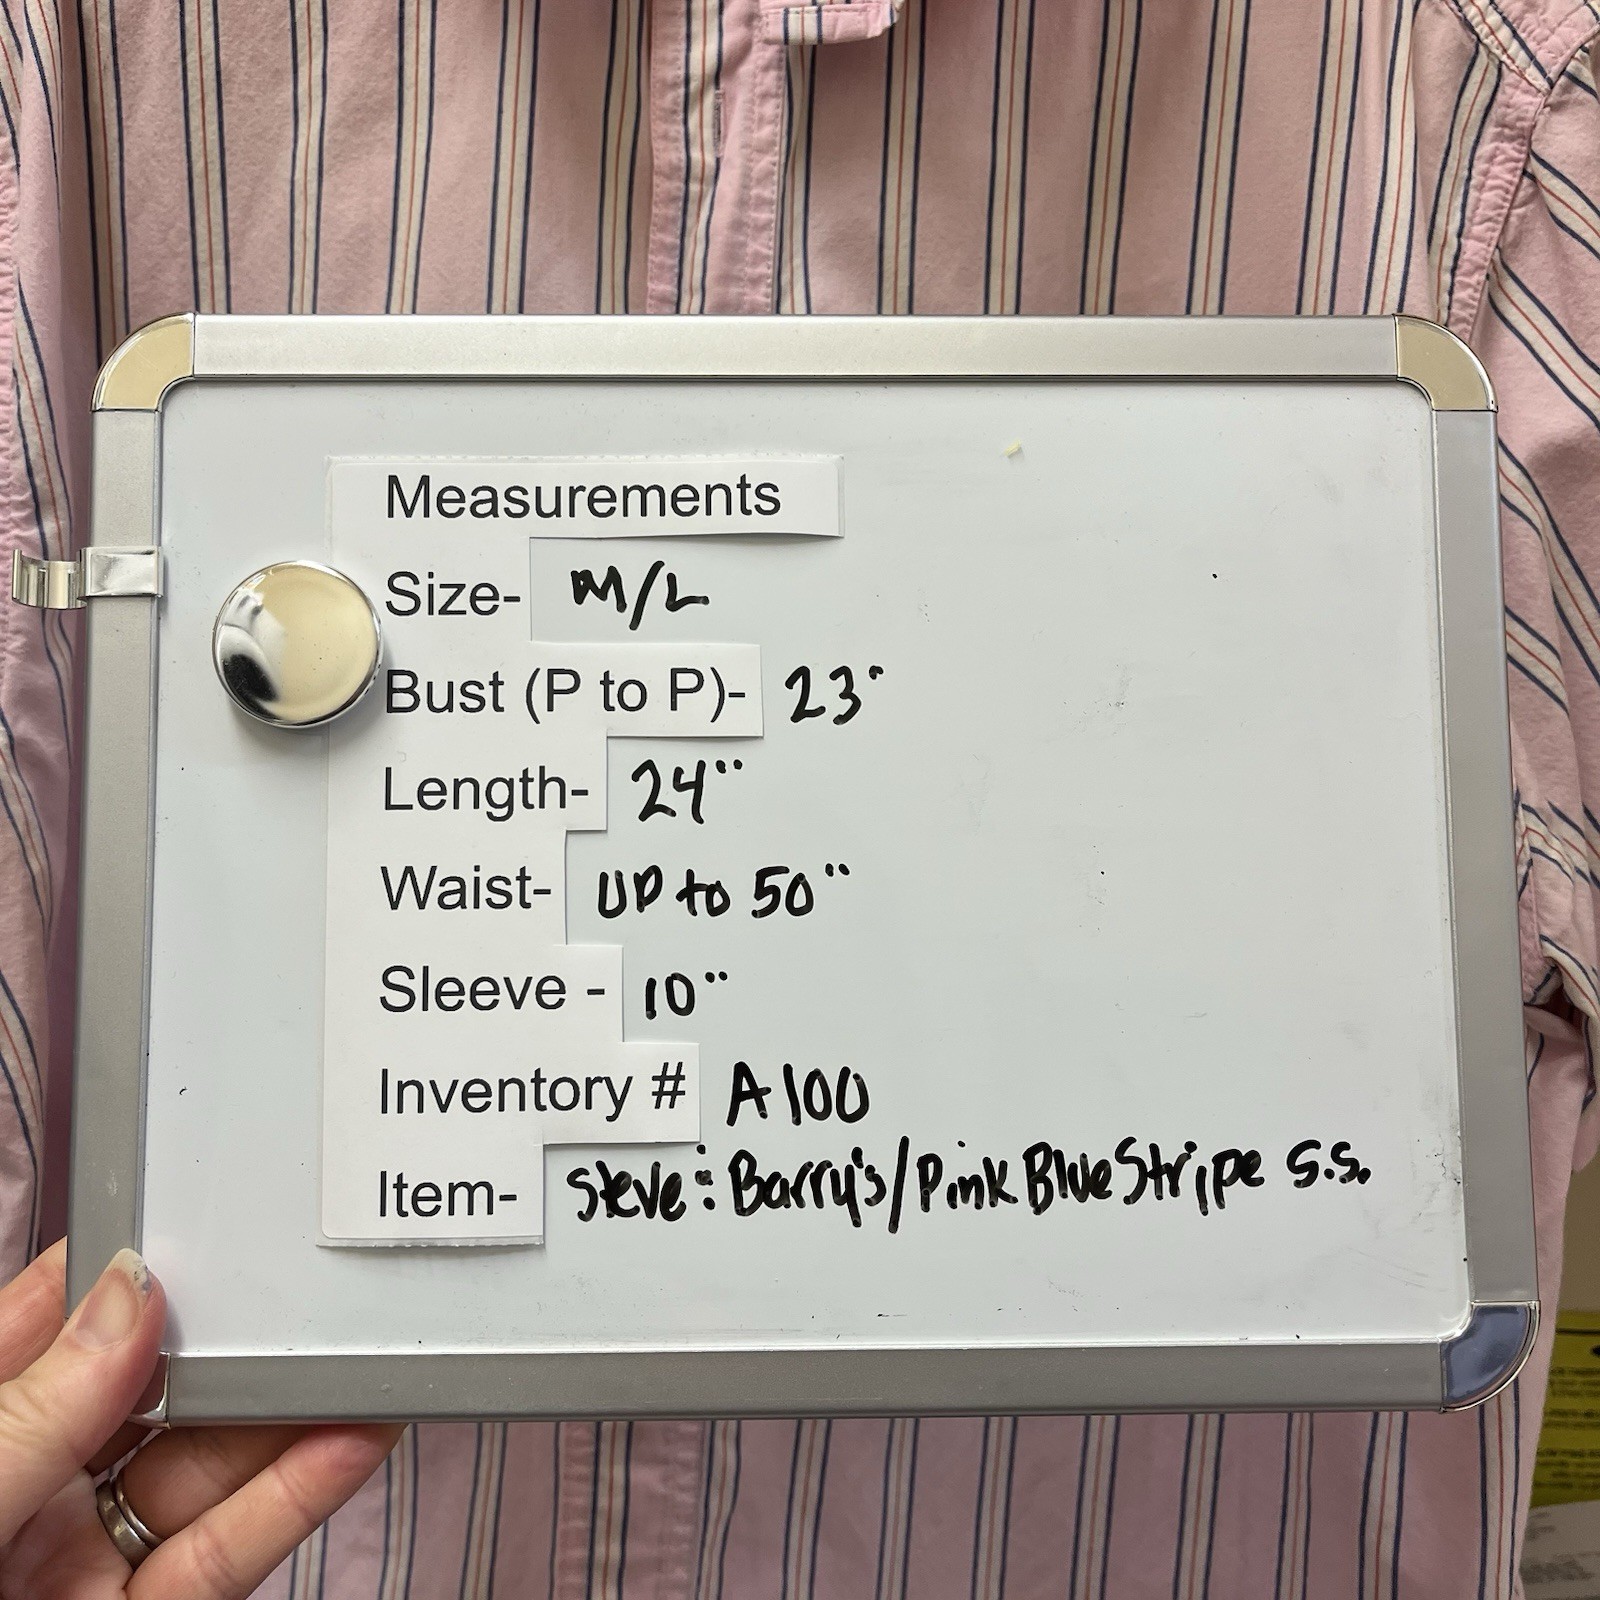 Measurements
Size- M/L
Bust (P to P)- 23"
Length- 24"
Waist- UP to 50"
Sleeve - 10"
Inventory # A100
Item- Steve: Barry's/Pink Blue Stripe s.s.